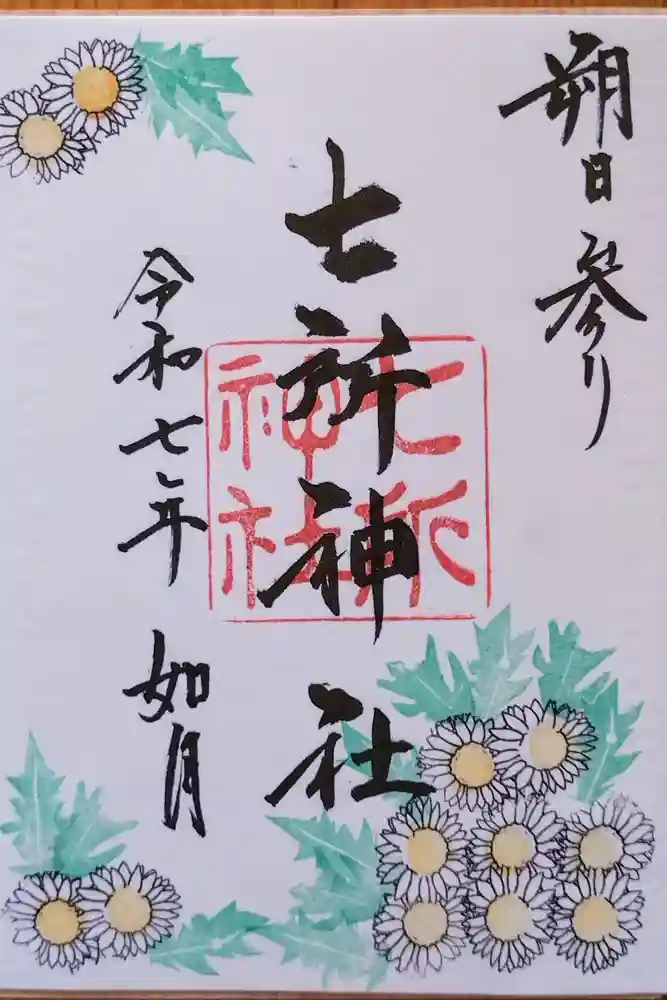 朔日参り
七所神社
七所
神社
令和七年
如月